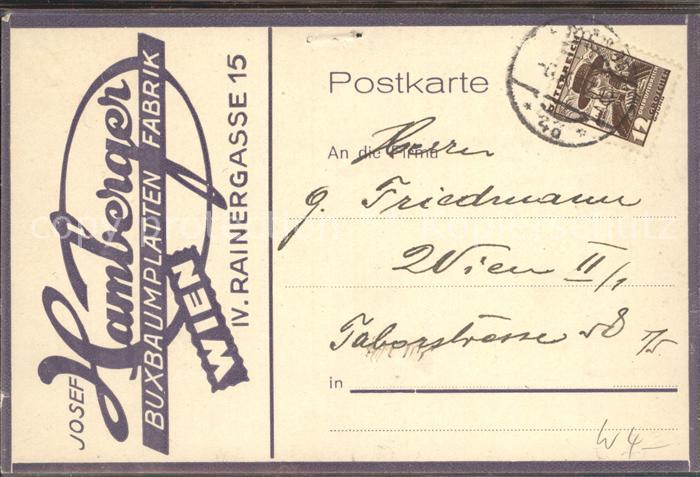 JOSEF
Hamberger
BUXBAUMPLATTEN FABRIK
WIEN
IV. RAINERGASSE 15
Postkarte
An die Firma
Herrn
J. Friedmann
Wien II/1
Taborstrasse 58
in
ÖSTERREICH
12
W 4-
copyright protection
Kopierschutz